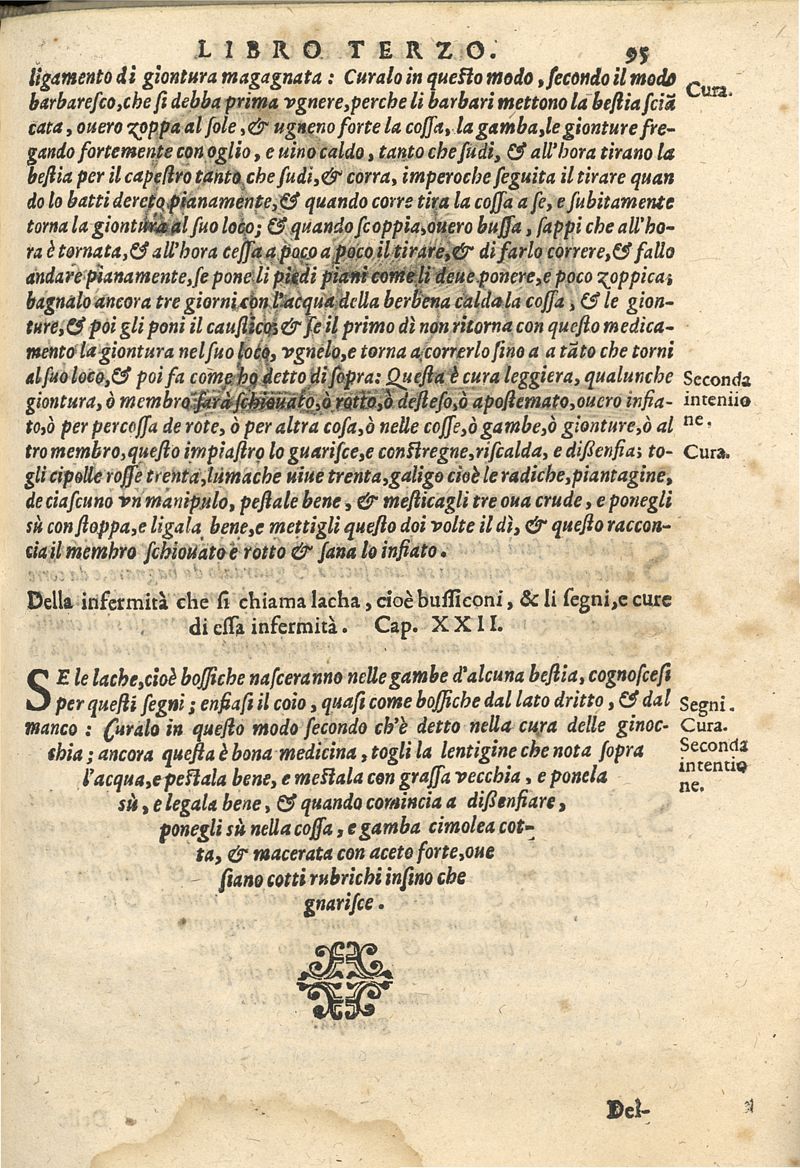 LIBRO TERZO. 95
ligamento di giontura magagnata: Curalo in questo modo, secondo il modo
Cura.
barbaresco, che si debba prima vgnere, perche li barbari mettono la bestia sciã
cata, ouero zoppa al sole, & ugneno forte la cossa, la gamba, le gionture fre-
gando fortemente con oglio, e uino caldo, tanto che sudi, & all'hora tirano la
bestia per il capestro tanto che sudi, & corra, imperoche seguita il tirare quan
do lo batti dereto pianamente, & quando corre tira la cossa a se, e subitamente
torna la giontura al suo loco; & quando scoppia, ouero bussa, sappi che all'ho-
ra è tornata, & all'hora cessa a poco a poco il tirare, & di farlo correre, & fallo
andare pianamente, se pone li piedi piani come li deue ponere, e poco zoppica;
bagnalo ancora tre giorni con l'acqua della berbena calda la cossa, & le gion-
ture, & poi gli poni il caustico; & se il primo dì non ritorna con questo medica-
mento la giontura nel suo loco, vgnelo, e torna a correrlo sino a a tãto che torni
al suo loco, & poi fa come ho detto di sopra: Questa è cura leggiera, qualunche
Seconda
giontura, ò membro sarà schiouato, ò rotto, ò desteso, ò apostemato, ouero infia-
intentio
to, ò per percossa de rote, ò per altra cosa, ò nelle cosse, ò gambe, ò gionture, ò al
ne.
tro membro, questo impiastro lo guarisce, e constregne, riscalda, e dißenfia; to-
Cura.
gli cipolle rosse trenta, lumache uiue trenta, galigo cioè le radiche, piantagine,
de ciascuno vn manipulo, pestale bene, & mesticagli tre oua crude, e ponegli
sù con stoppa, e ligala bene, e mettigli questo doi volte il dì, & questo raccon-
cia il membro schiouato e rotto & sana lo infiato.
Della infermità che si chiama lacha, cioè bussiconi, & li segni, e cure
di essa infermità. Cap. XXII.
SE le lache, cioè bossiche nasceranno nelle gambe d'alcuna bestia, cognoscesi
per questi segni; enfiasi il coio, quasi come bossiche dal lato dritto, & dal
Segni.
manco: Curalo in questo modo secondo ch'è detto nella cura delle ginoc-
Cura.
chia; ancora questa è bona medicina, togli la lentigine che nota sopra
Seconda
l'acqua, e pestala bene, e mestala con grassa vecchia, e ponela
intentio
sù, e legala bene, & quando comincia a dißenfiare,
ne.
ponegli sù nella cossa, e gamba cimolea cot-
ta, & macerata con aceto forte, oue
siano cotti rubrichi insino che
guarisce.
Del-